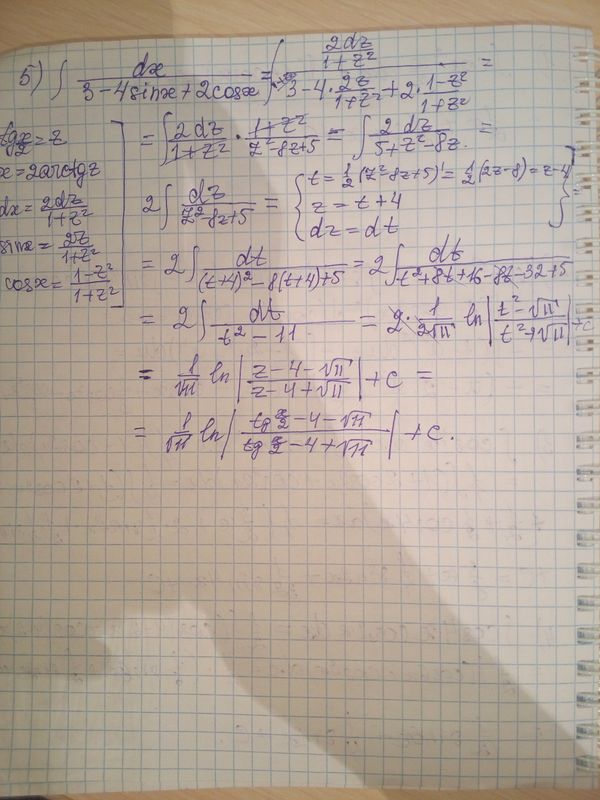 5) ∫ dx / (3 - 4sinx + 2cosx) = ∫ (2dz / (1+z²)) / (3 - 4·2z/(1+z²) + 2·(1-z²)/(1+z²)) =
tg x/2 = z
x = 2arctgz
dx = 2dz/(1+z²)
sinx = 2z/(1+z²)
cosx = (1-z²)/(1+z²) ]
= ∫ 2dz/(1+z²) · (1+z²)/(z²-8z+5) = ∫ 2dz/(5+z²-8z) =
2∫ dz/(z²-8z+5) = { t = 1/2(z²-8z+5)' = 1/2(2z-8) = z-4
z = t+4
dz = dt } =
= 2∫ dt/((t+4)²-8(t+4)+5) = 2∫ dt/(t²+8t+16-8t-32+5)
= 2∫ dt/(t²-11) = 2·1/(2√11) ln|(t²-√11)/(t²+√11)|+c
= 1/√11 ln|(z-4-√11)/(z-4+√11)|+c =
= 1/√11 ln|(tg x/2 -4-√11)/(tg x/2 -4+√11)|+c.